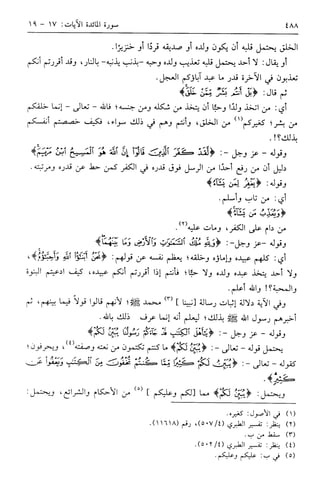 ٤٨٨ سورة المائدة الآيات: ١٧ - ١٩
الخلق يحتمل قلبه أن يكون ولده أو صديقه قردًا أو خنزيرًا.
أو يقال: لا أحد يحتمل قلبه تعذيب ولده وحبه -بذنب يذنبه- بالنار، وقد أقررتم أنكم
تعذبون في الآخرة قدر ما عبد آباؤكم العجل.
ثم قال: ﴿بَلْ أَنتُم بَشَرٌ مِّمَّنْ خَلَقَ﴾
أي: من اتخذ ولدًا وحبًّا أن يتخذ من شكله ومن جنسه؛ فالله - تعالى - إنما خلقكم
من بشر؛ كغيركم(١) من الخلق، وأنتم وهم في ذلك سواء، فكيف خصصتم أنفسكم
بذلك؟!.
وقوله - عز وجل -: ﴿لَّقَدْ كَفَرَ الَّذِينَ قَالُوٓا إِنَّ اللَّهَ هُوَ الْمَسِيحُ ابْنُ مَرْيَمَ﴾
دليل أن من رفع أحدًا من الرسل فوق قدره في الكفر كمن حط عن قدره ومرتبته.
وقوله: ﴿يَغْفِرُ لِمَن يَشَآءُ﴾
أي: من تاب وأسلم.
﴿وَيُعَذِّبُ مَن يَشَآءُ﴾
من دام على الكفر، ومات عليه(٢).
وقوله -عز وجل-: ﴿وَلِلَّهِ مُلْكُ السَّمَٰوَٰتِ وَالْأَرْضِ وَمَا بَيْنَهُمَا﴾
أي: كلهم عبيده وإماؤه وخلقه؛ يعظم نفسه عن قولهم: ﴿نَحْنُ أَبْنَٰٓؤُا اللَّهِ وَأَحِبَّٰٓؤُهُ﴾،
ولا أحد يتخذ عبده ولده ولا حبًّا؛ فأنتم إذا أقررتم أنكم عبيده، كيف ادعيتم البنوة
والمحبة؟! والله أعلم.
وفي الآية دلالة إثبات رسالة [نبينا ](٣) محمد ﷺ؛ لأنهم قالوا قولًا فيما بينهم، ثم
أخبرهم رسول الله ﷺ بذلك؛ ليعلم أنه إنما عرف ذلك بالله.
وقوله - عز وجل -: ﴿يَٰٓأَهْلَ الْكِتَٰبِ قَدْ جَآءَكُمْ رَسُولُنَا يُبَيِّنُ لَكُمْ﴾
يحتمل قوله - تعالى -: ﴿يُبَيِّنُ لَكُمْ﴾ ما كنتم تكتمون من نعته وصفته(٤)، ويحرفون؛
كقوله - تعالى -: ﴿يُبَيِّنُ لَكُمْ كَثِيرًا مِّمَّا كُنتُمْ تُخْفُونَ مِنَ الْكِتَٰبِ وَيَعْفُوا عَن
كَثِيرٍ﴾.
ويحتمل: ﴿يُبَيِّنُ لَكُمْ﴾ مما [لكم وعليكم ](٥) من الأحكام والشرائع، ويحتمل:
(١) في الأصول: كغيره.
(٢) ينظر: تفسير الطبري (٥٠٧/٤)، رقم (١١٦١٨).
(٣) سقط من ب.
(٤) ينظر: تفسير الطبري (٥٠٢/٤).
(٥) في ب: عليكم وعليكم.